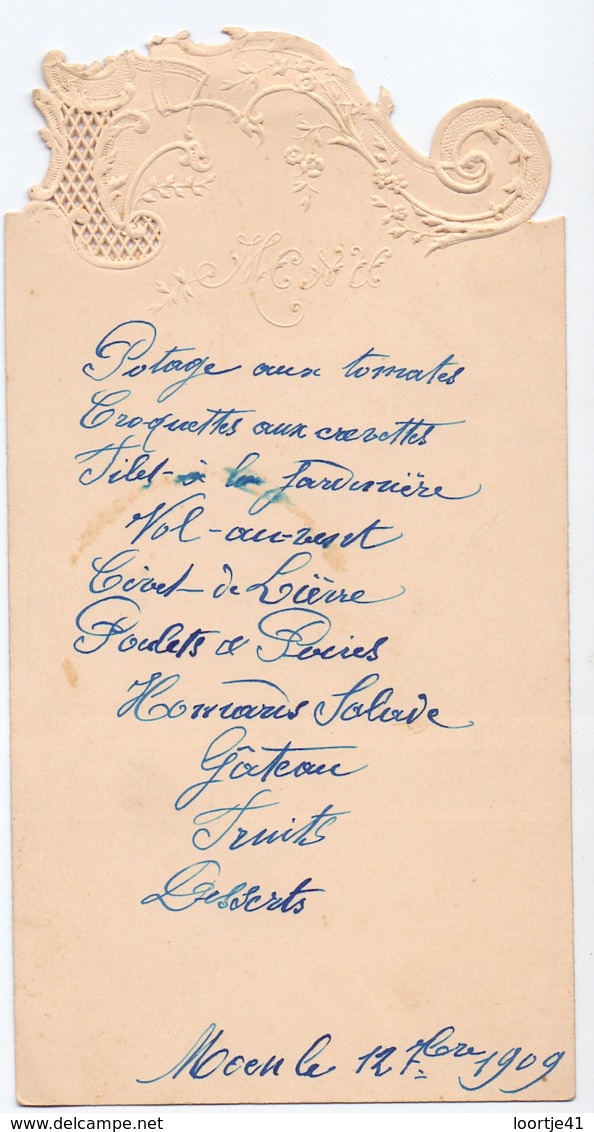 Menu
Potage aux tomates
Croquettes aux crevettes
Filet à la Jardinière
Vol-au-vent
Civet de Lièvre
Poulets & Poires
Homards Salade
Gâteau
Fruits
Desserts
Moen le 12 7bre 1909
www.delcampe.net
loortje41